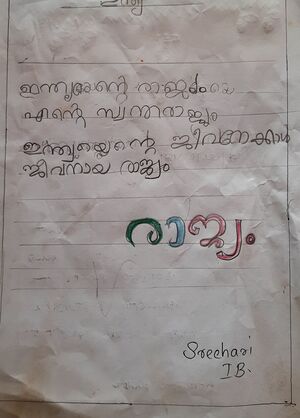 ഇന്ത്യ
ഇന്ത്യഎന്റെ രാജ്യം
എന്റെ സ്വന്തരാജ്യം
ഇന്ത്യയെന്റെ ജീവനേക്കാൾ
ജീവനായ രാജ്യം
രാജ്യം.
Sreehari
I B.